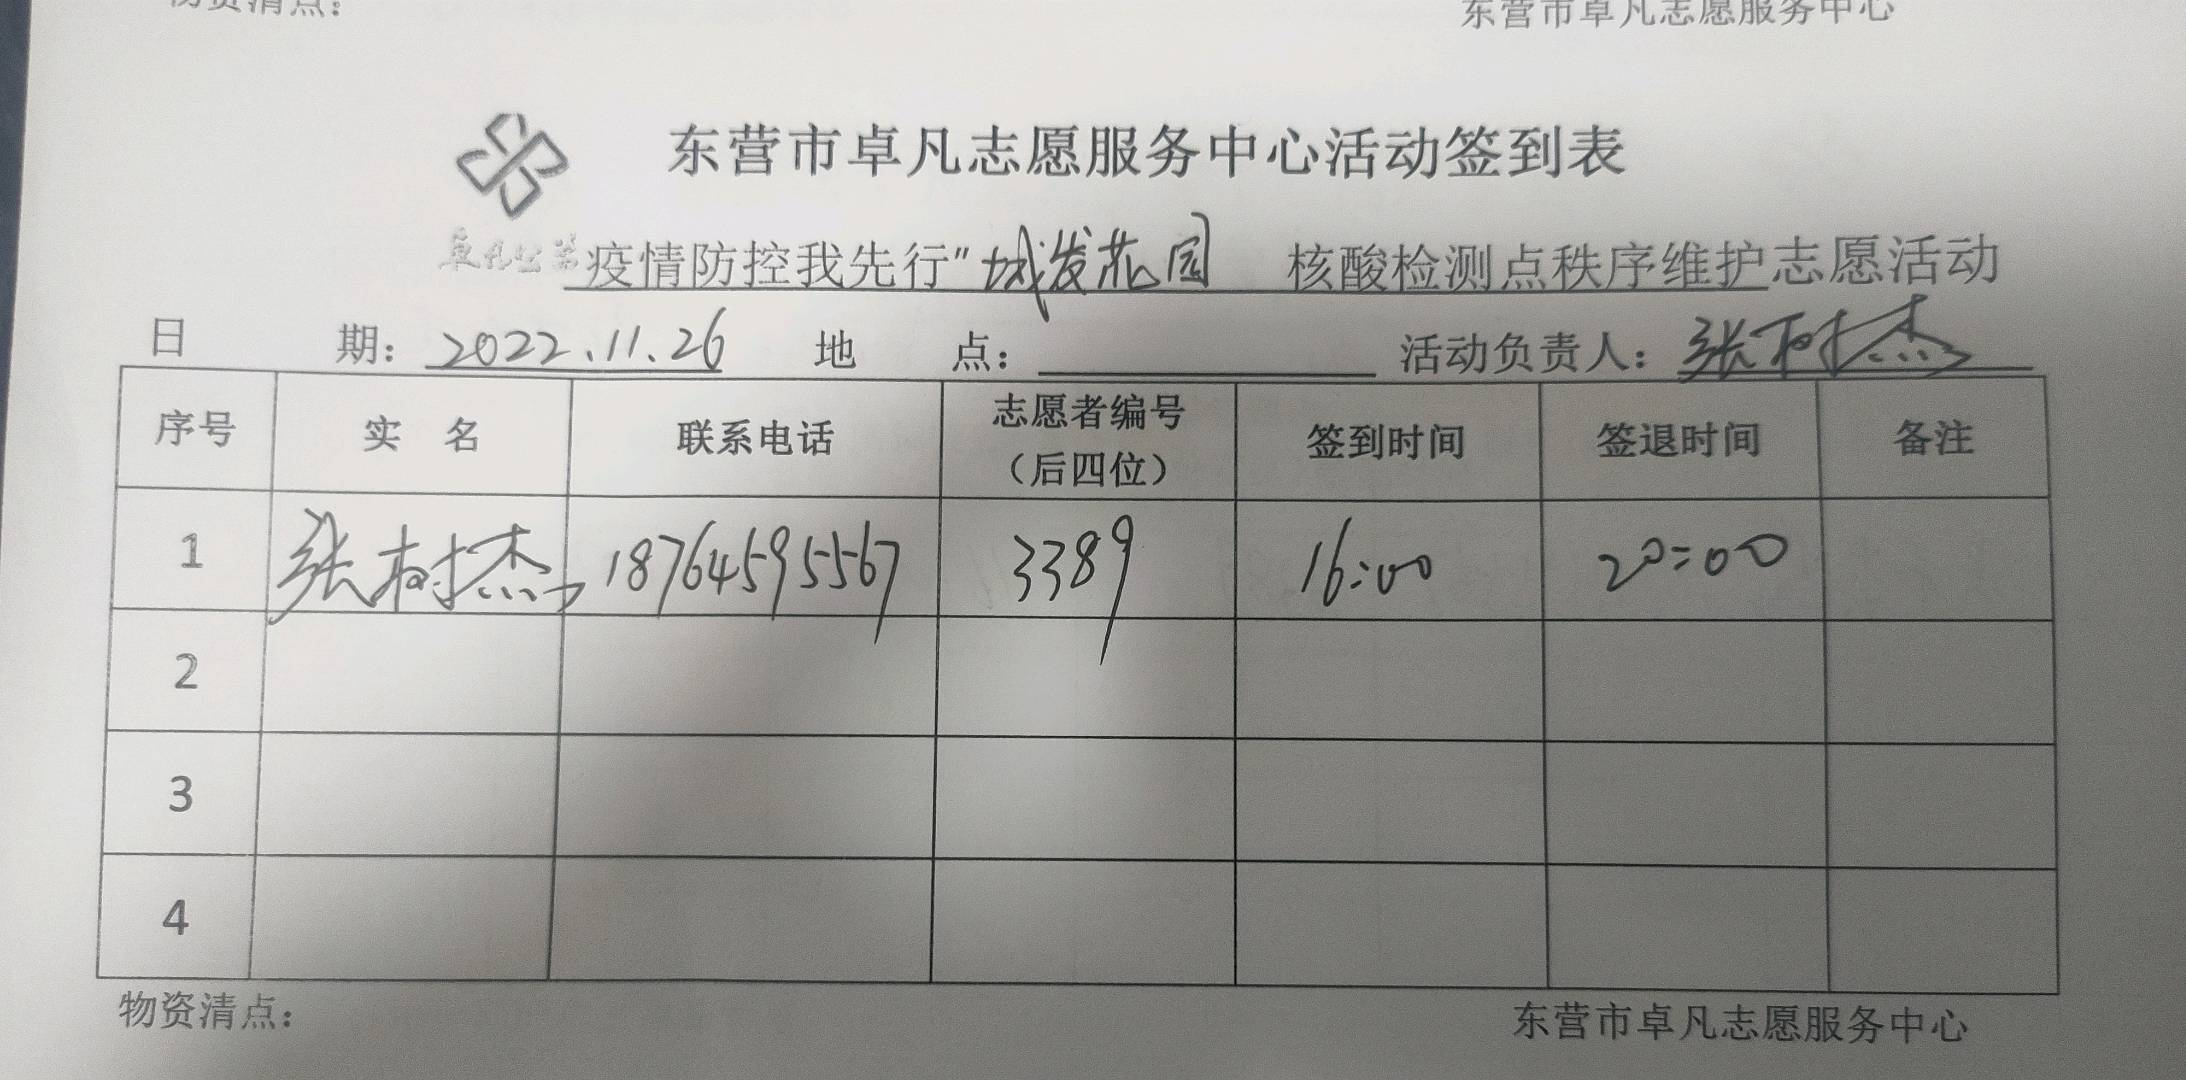 物资清点：
东营市卓凡志愿服务中心
东营市卓凡志愿服务中心活动签到表
疫情防控我先行"城发花园 核酸检测点秩序维护志愿活动
日 期：2022.11.26 地 点： 活动负责人：张树杰
序号 实 名 联系电话 志愿者编号（后四位） 签到时间 签退时间 备注
1 张树杰 18764595567 3389 16:00 20:00
2
3
4
物资清点： 东营市卓凡志愿服务中心